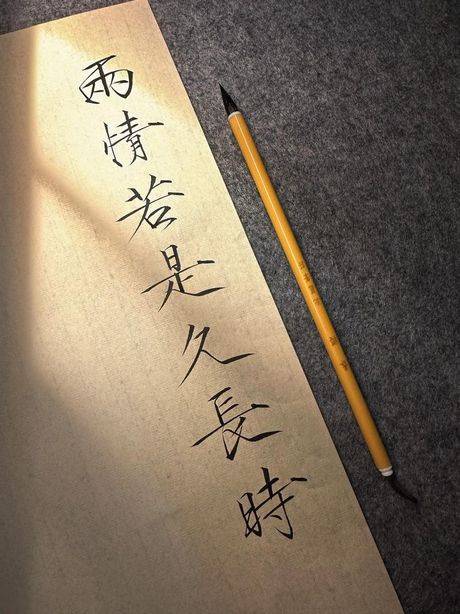 兩情若是久長時